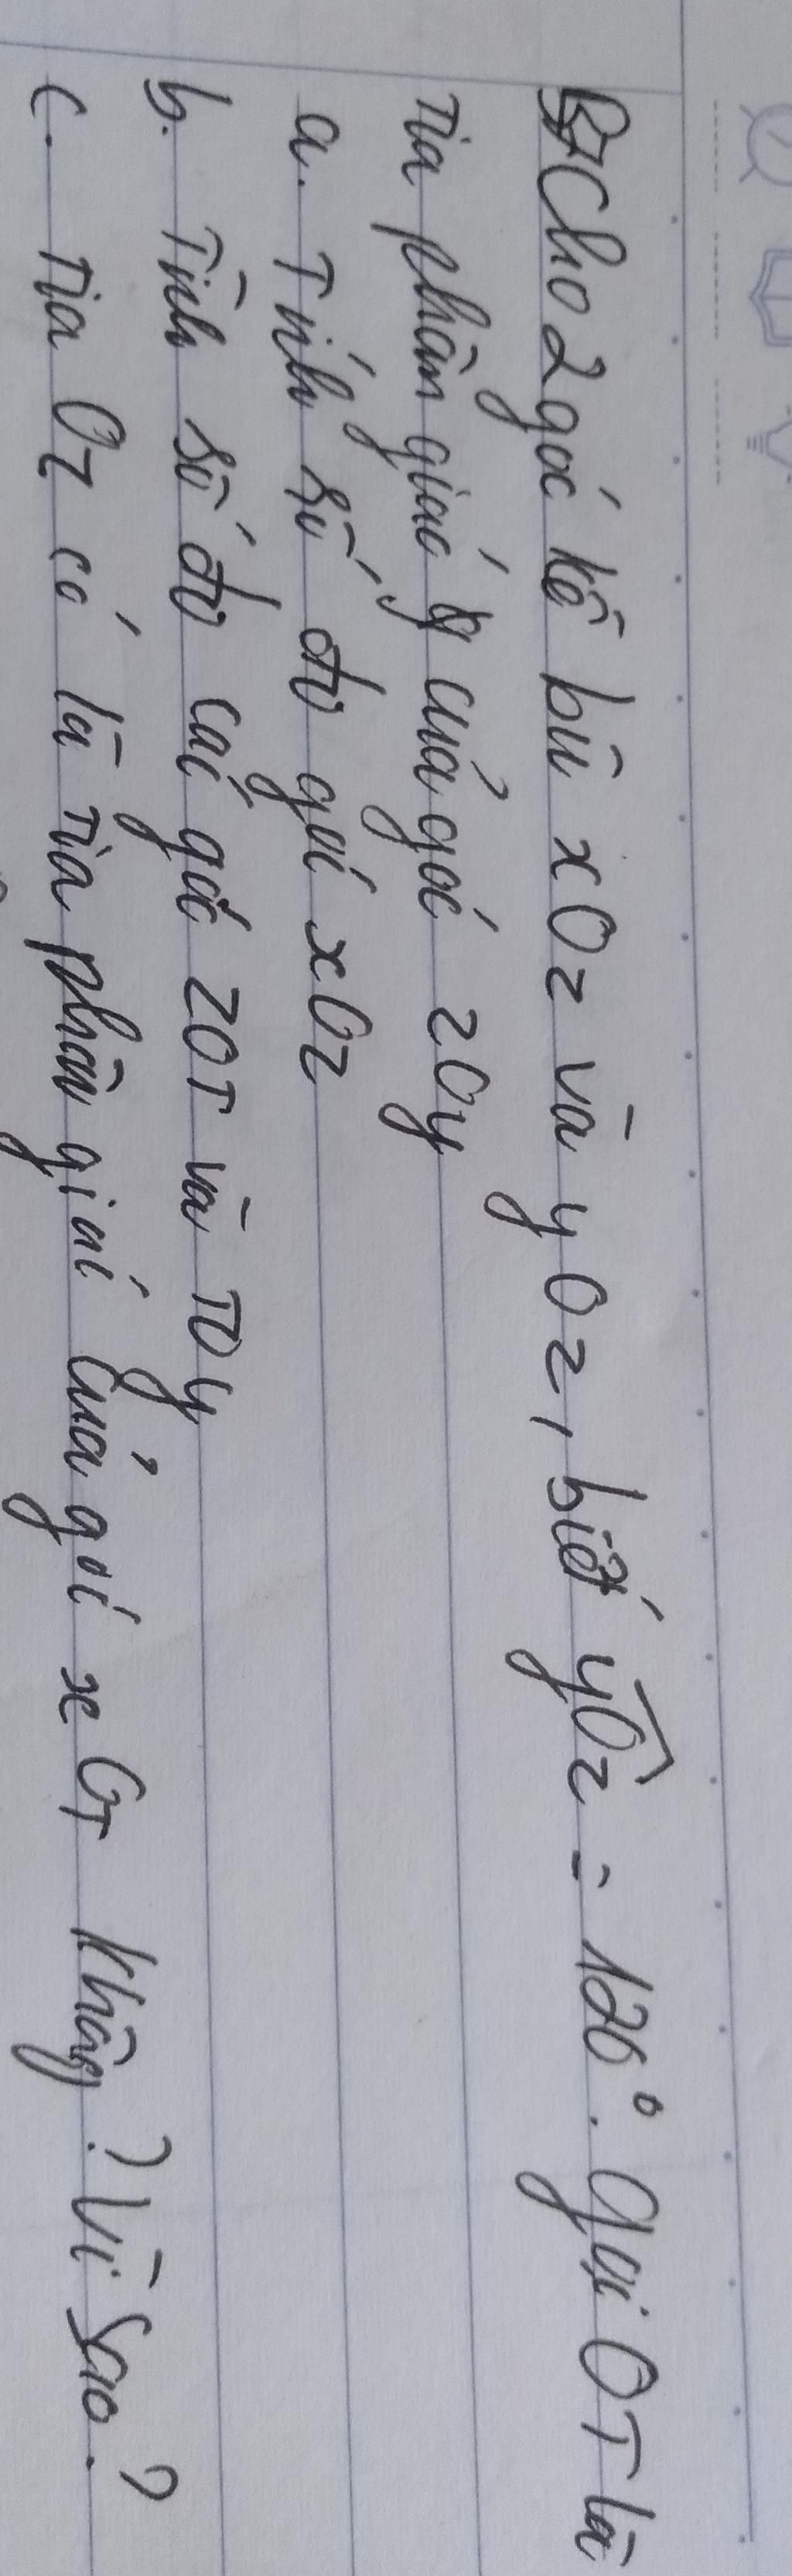 B7 Cho 2 góc kề bù xOz và yOz, biết yOz = 120°. Gọi OT là
Tia phân giác của góc zOy
a. Tính số đo gói xOz
b. Tính số đo các góc zOT và TOy
c. Tia Oz có là tia phân giác của gói xOT không? Vì sao?